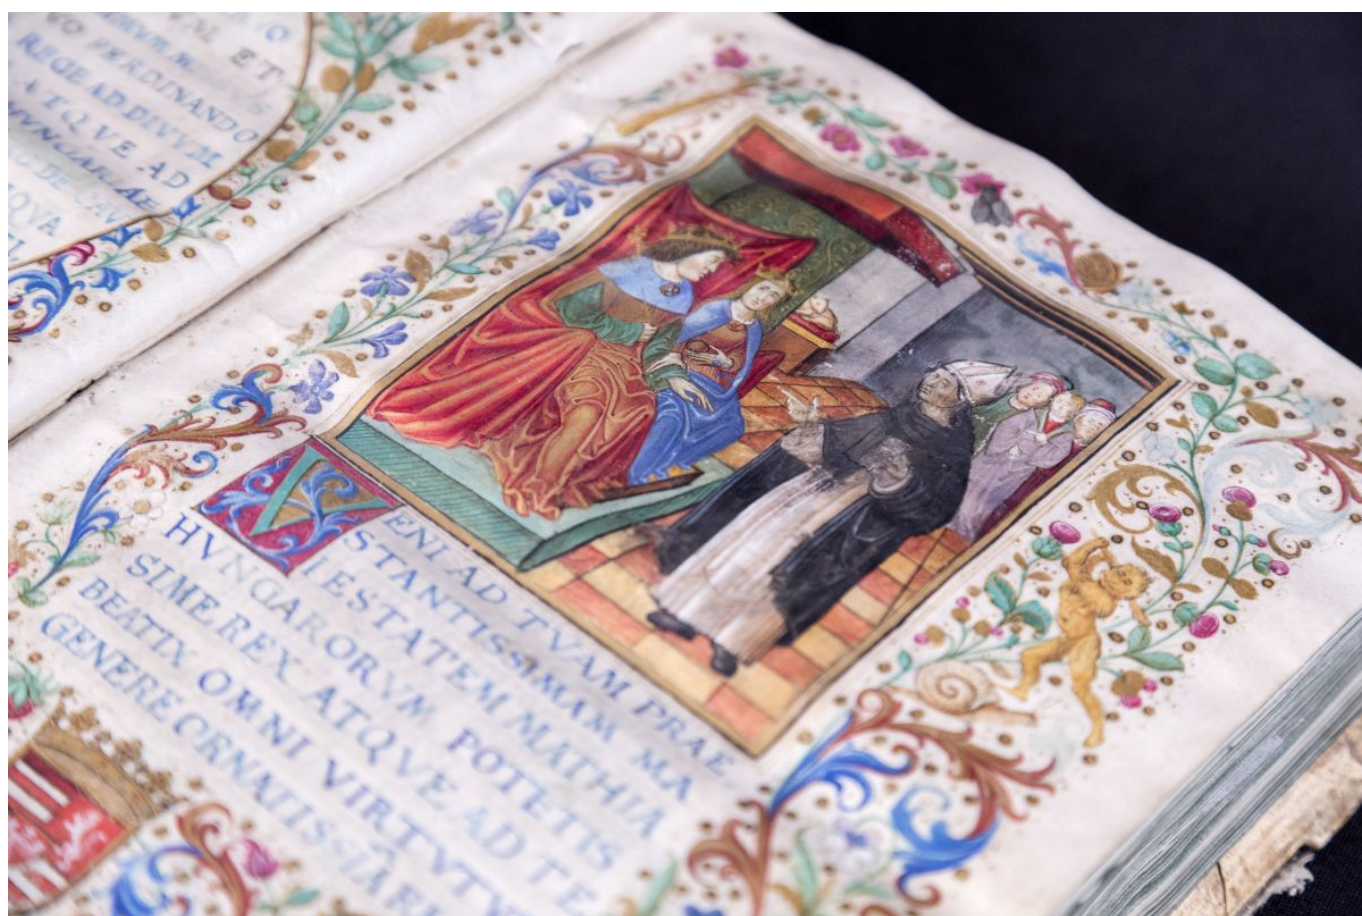 ET
FERDINANDO
REGE AD DIVVM
ATQVE AD
QVA
VENI AD TVAM PRAE
STANTISSIMAM MA
IESTATEM MATHIA
HVNGARORVM POTETIS
SIME REX ATQVE AD TE
BEATIX OMNI VIRTVTV
GENERE